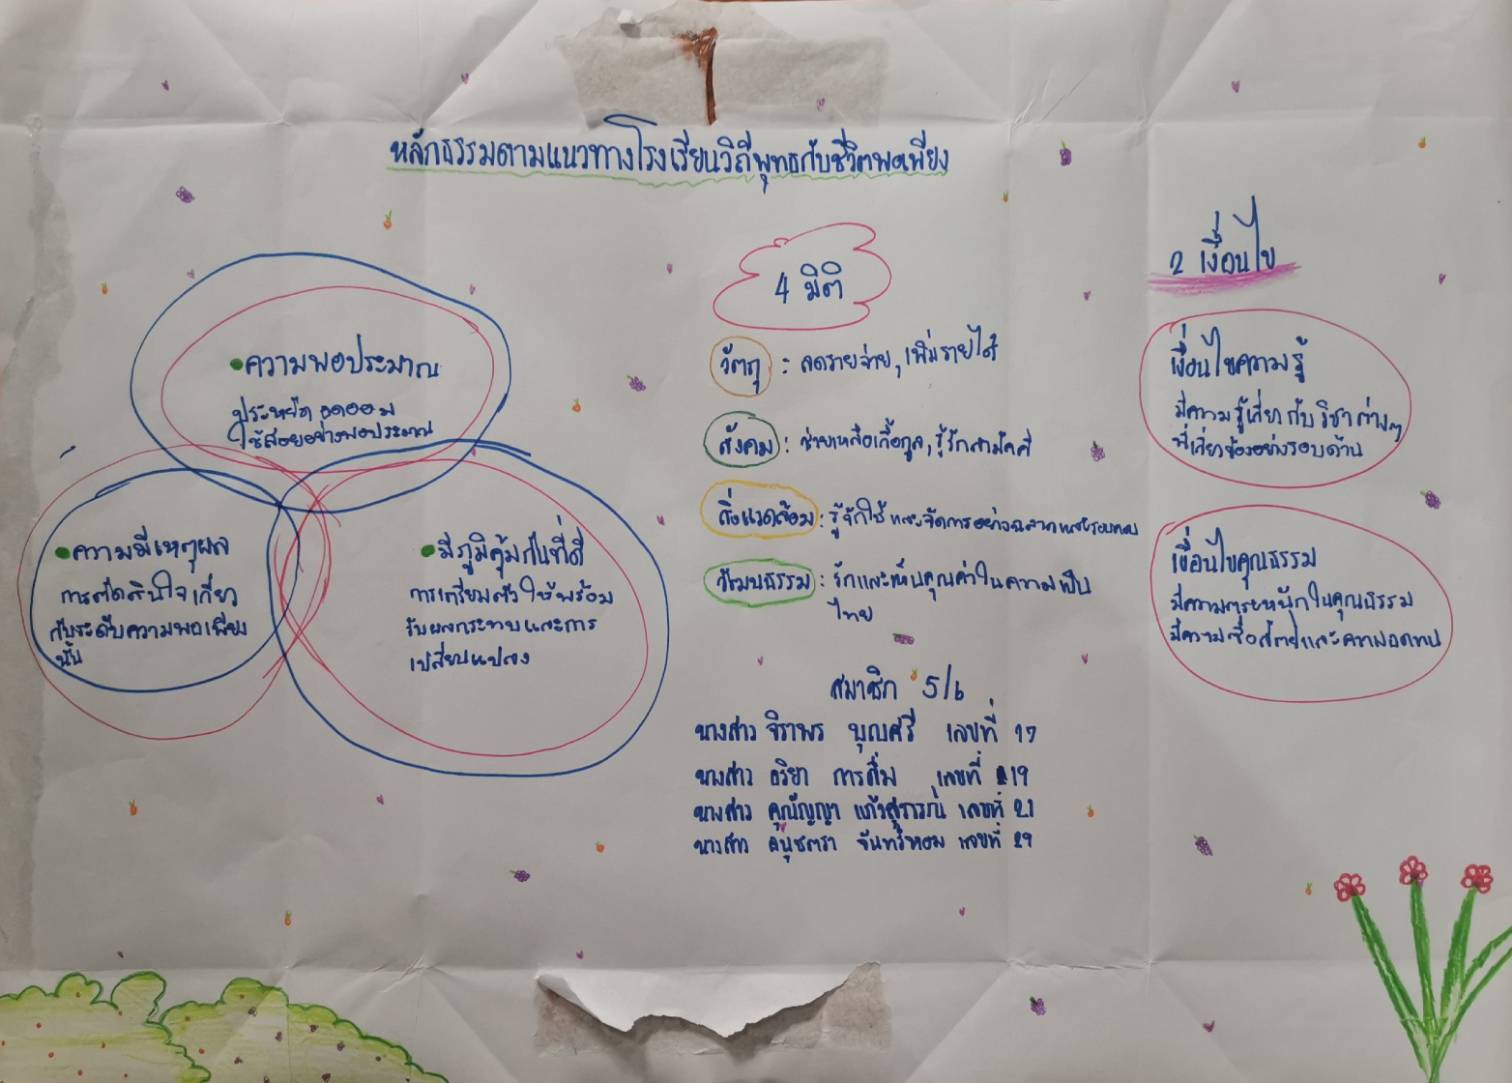 หลักธรรมตามแนวทางโรงเรียนวิถีพุทธกับชีวิตพอเพียง
• ความพอประมาณ
ประหยัด อดออม
ใช้สอยอย่างพอประมาณ
• ความมีเหตุผล
การตัดสินใจเกี่ยว
กับระดับความพอเพียง
นั้น
• มีภูมิคุ้มกันที่ดี
การเตรียมตัวให้พร้อม
รับผลกระทบและการ
เปลี่ยนแปลง
4 มิติ
วัตถุ : ลดรายจ่าย, เพิ่มรายได้
สังคม : ช่วยเหลือเกื้อกูล, รู้รักสามัคคี
สิ่งแวดล้อม : รู้จักใช้และจัดการอย่างฉลาดและรอบคอบ
วัฒนธรรม : รักและเห็นคุณค่าในความเป็น
ไทย
สมาชิก 5/6
นางสาว จิราพร บุญศรี เลขที่ 17
นางสาว อริยา การสิ่ม เลขที่ 19
นางสาว คุณัญญา แก้ว เลขที่ 21
นางสาว อนุชตรา จันทร์หอม เลขที่ 29
2 เงื่อนไข
เงื่อนไขความรู้
มีความรู้เกี่ยวกับวิชาต่างๆ
ที่เกี่ยวข้องอย่างรอบด้าน
เงื่อนไขคุณธรรม
มีความตระหนักในคุณธรรม
มีความซื่อสัตย์และความอดทน